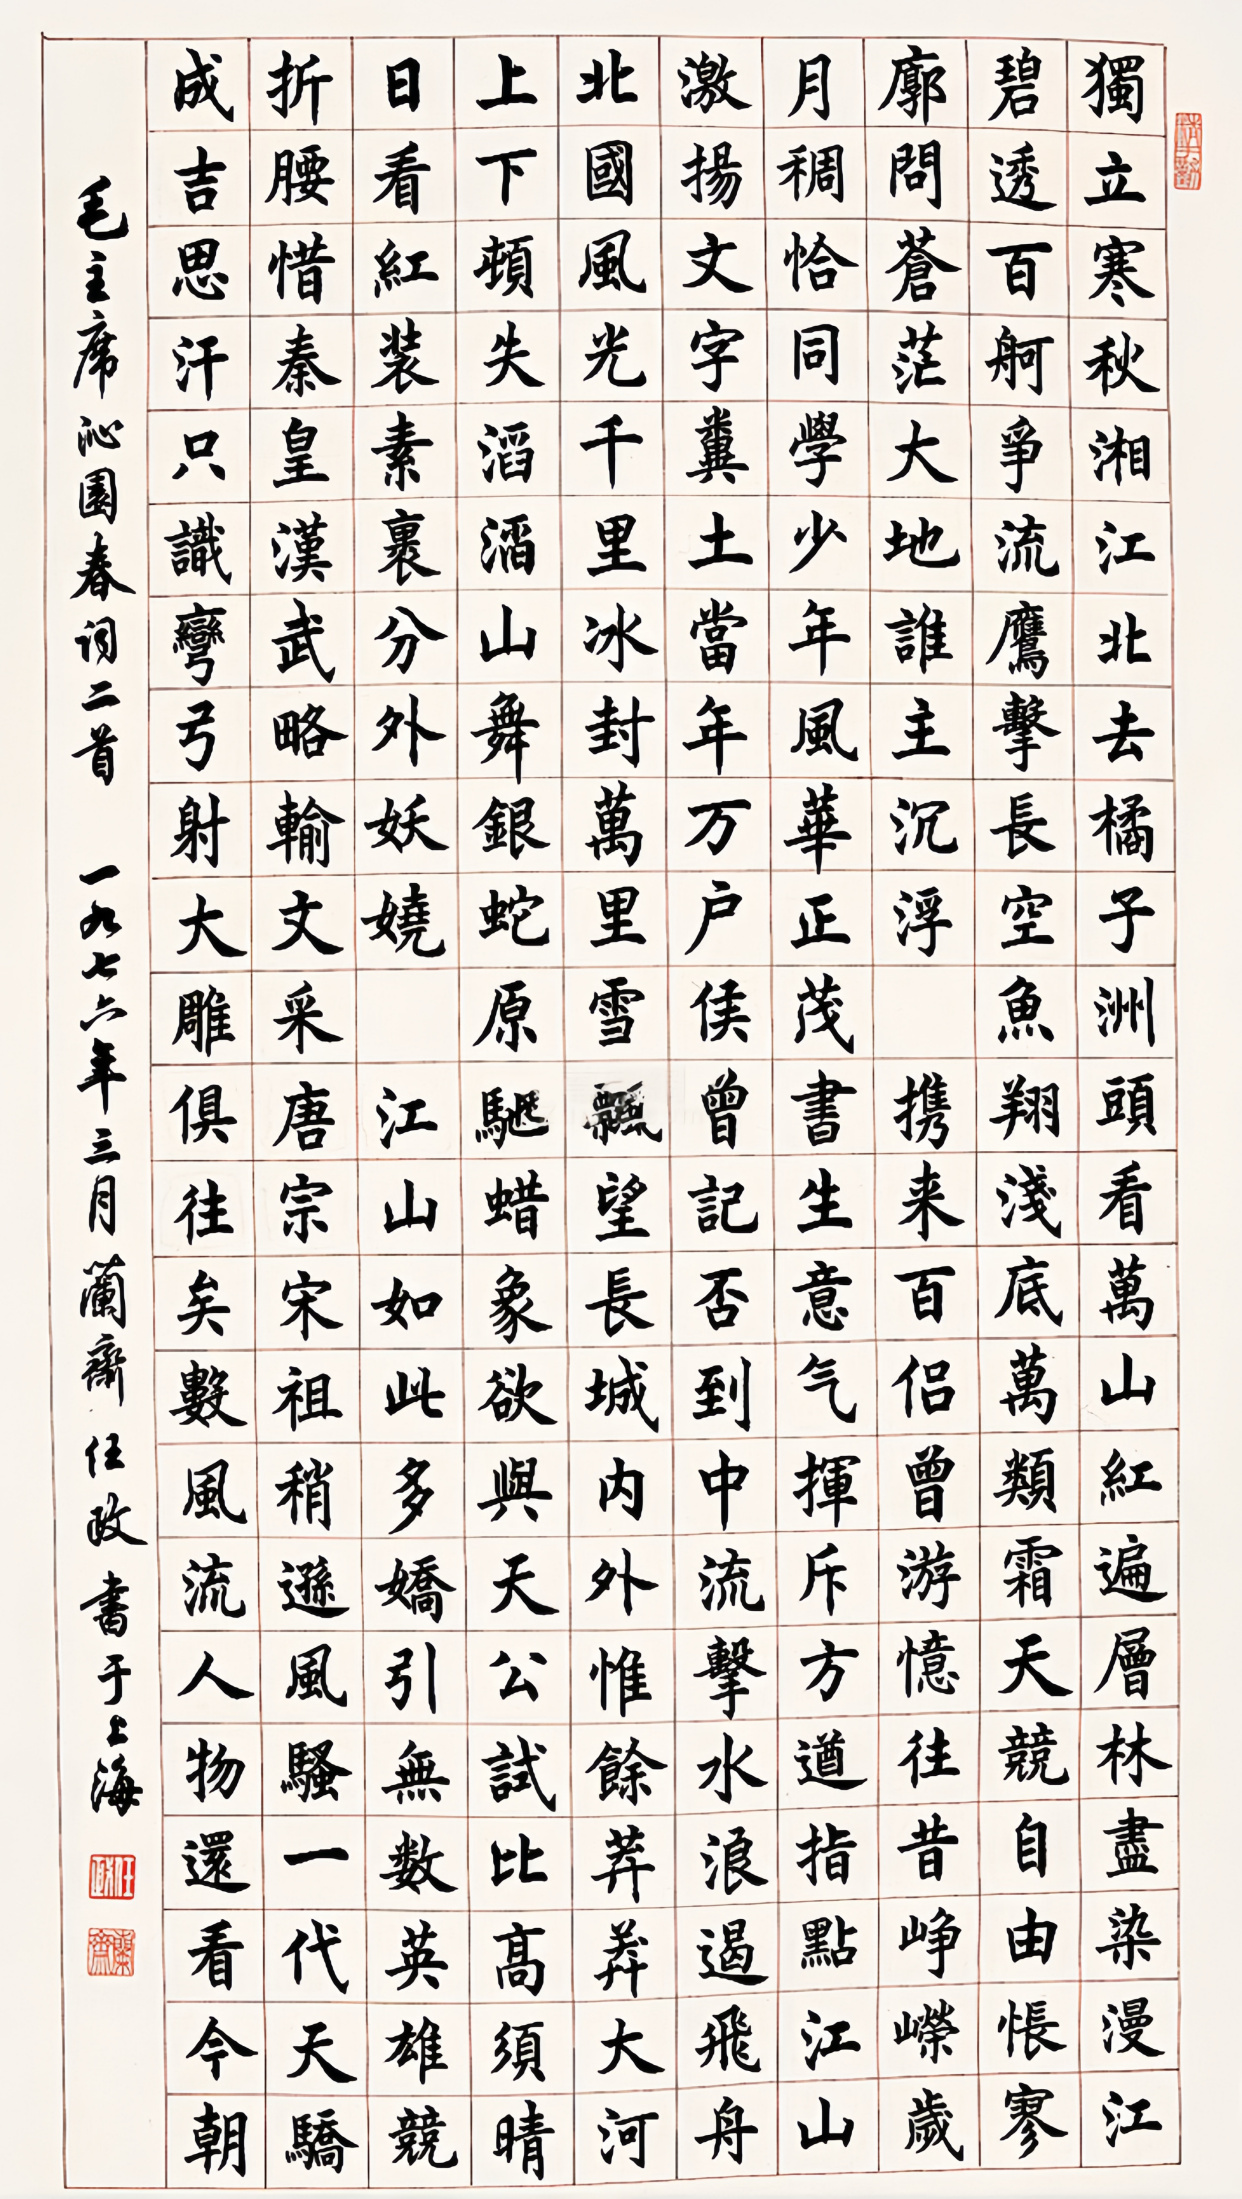 獨立寒秋湘江北去橘子洲頭看萬山紅遍層林盡染漫江
碧透百舸爭流鷹擊長空魚翔淺底萬類霜天競自由悵寥
廓問蒼茫大地誰主沉浮 携来百侣曾游憶往昔峥嶸歲
月稠恰同學少年風華正茂書生意气揮斥方遒指點江山
激揚文字糞土當年万户侯曾記否到中流擊水浪遏飛舟
北國風光千里冰封萬里雪飄望長城内外惟餘莽莽大河
上下頓失滔滔山舞銀蛇原馳蜡象欲與天公試比高須晴
日看紅装素裹分外妖嬈 江山如此多嬌引無数英雄競
折腰惜秦皇漢武略輸文采唐宗宋祖稍遜風騷一代天驕
成吉思汗只識彎弓射大雕俱往矣數風流人物還看今朝
毛主席沁園春词二首 一九七六年三月蘭齋任政書于上海
任政
蘭齋